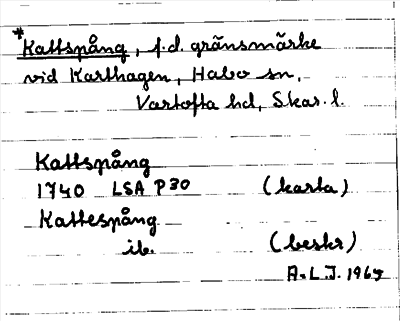 *Kattspång, f.d. gränsmärke
vid Karthagen, Habo sn,
Vartofta hd, Skar. l.
Kattspång
1740 LSA P30 (karta)
Kattespång
ib. (beskr)
A.L.J. 1967